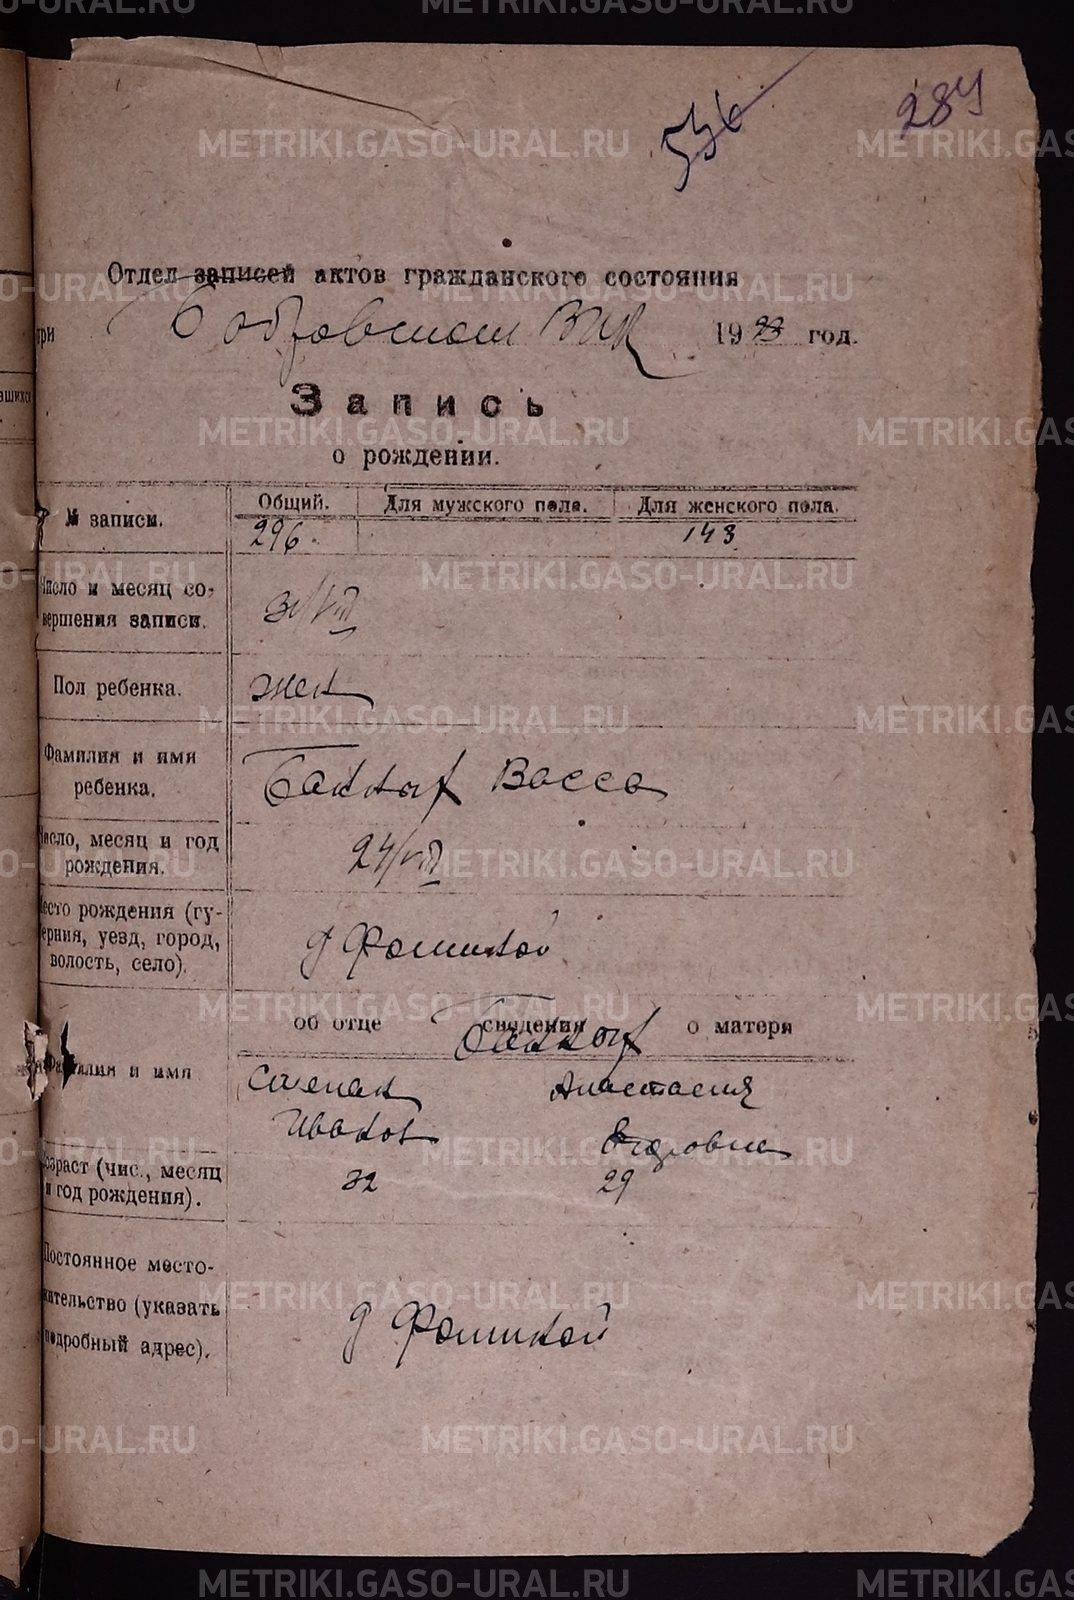 284
536
Отдел записей актов гражданского состояния
при Бобровском ВИК 1923 год.
Запись
о рождении.
№ записи. Общий. Для мужского пола. Для женского пола.
296. 143
Число и месяц со-
вершения записи. 31/VIII
Пол ребенка. жен
Фамилия и имя
ребенка. Васса
Число, месяц и год
рождения. 24/VIII
Место рождения (гу-
берния, уезд, город,
волость, село). д Фоминкой
об отце сведения о матери
Фамилия и имя Степан Анастасия
Иванов Федоровна
Возраст (чис., месяц
и год рождения). 32 29
Постоянное место-
жительство (указать
подробный адрес). д Фоминкой